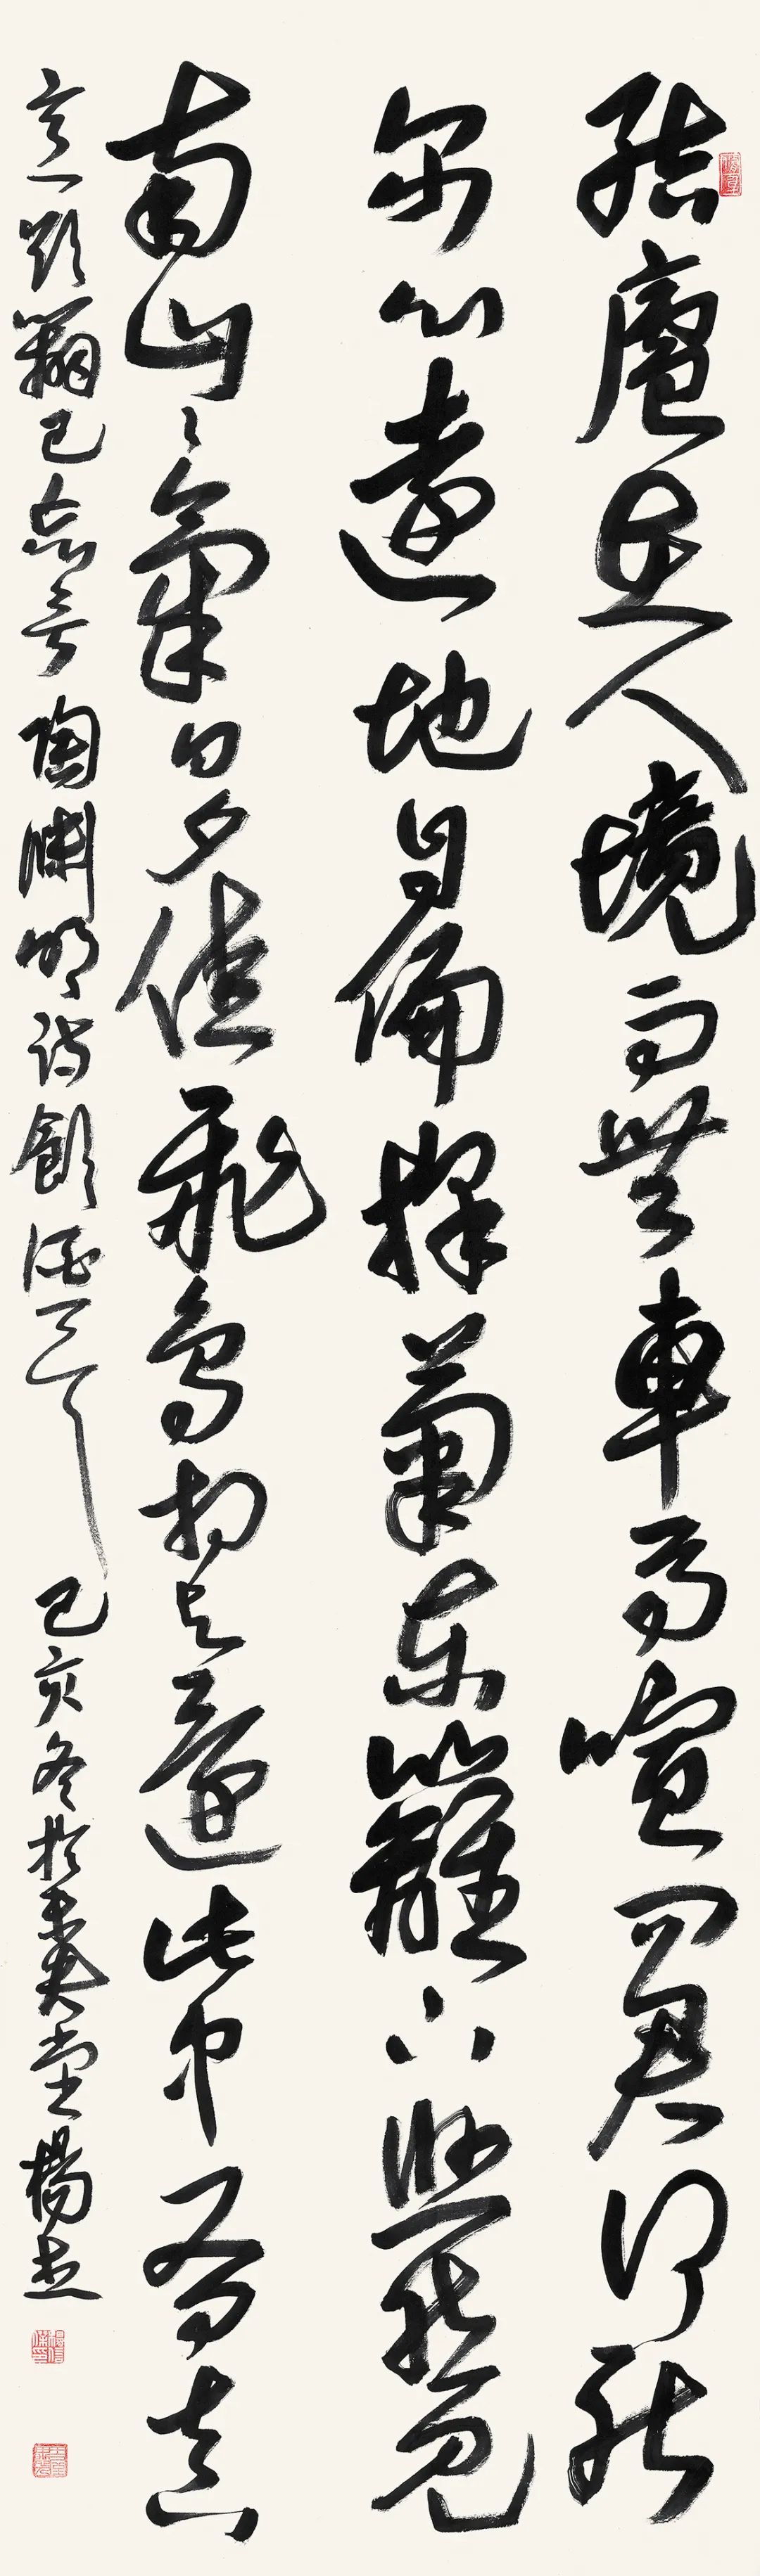 結廬在人境而無車馬喧問君何能
尔心遠地自偏採菊東籬下悠然見
南山々氣日夕佳飛鳥相與還此中有真
意欲辯已忘言 陶淵明詩飲酒 己亥冬於堂 楊